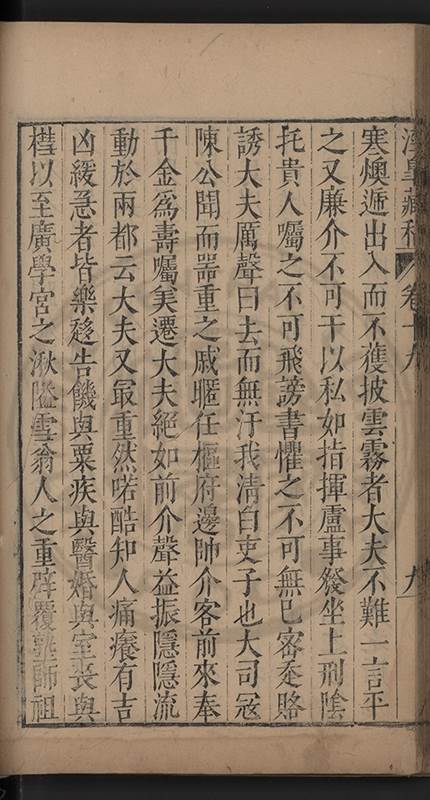 藏稿 卷十九 九
寒燠遞出入而不獲披雲霧者大夫不難一言平
之又廉介不可干以私如指揮盧事發坐上刑陰
托貴人囑之不可飛謗書懼之不可無已密委賂
誘大夫厲聲曰去而無汙我清白吏子也大司冦
陳公聞而噐重之戚暱任樞府邊帥介客前來奉
千金為壽囑美遷大夫絕如前介聲益振隱隱流
動於兩都云大夫又㝡重然喏酷知人痛癢有吉
凶緩急者皆樂趍告饑與粟疾與醫婚與室喪與
槥以至廣學宮之湫隘雪翁人之重辟覆塾師祖